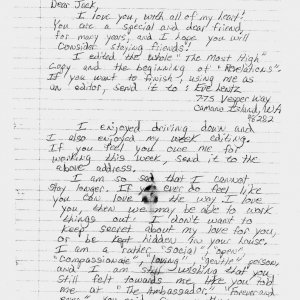 Dear Jack,
I love you, with all of my heart!
You are a special and dear friend,
for many years, and I hope you will
Consider staying friends!
I edited the whole "The Most High"
Copy and the beginning of "Revelations".
If you want to finish, using me as
an editor, send it to: Eve Lentz
775 Vesper Way
Camano Island, WA
98282
I enjoyed driving down and
I also enjoyed my week editing.
If you feel you owe me for
working this week, send it to the
above address.
I am so sad that I cannot
stay longer. If you ever do feel like
you can love me the way I love
you, then we may be able to work
things out. I don't want to
keep secret about my love for you,
or be kept hidden in your house.
I am a rather "social", "open"
"Compassionate", "loving" "gentle" person,
and I am still wishing that you
still felt towards me like you told
me at "The Ambassador". "Forever and